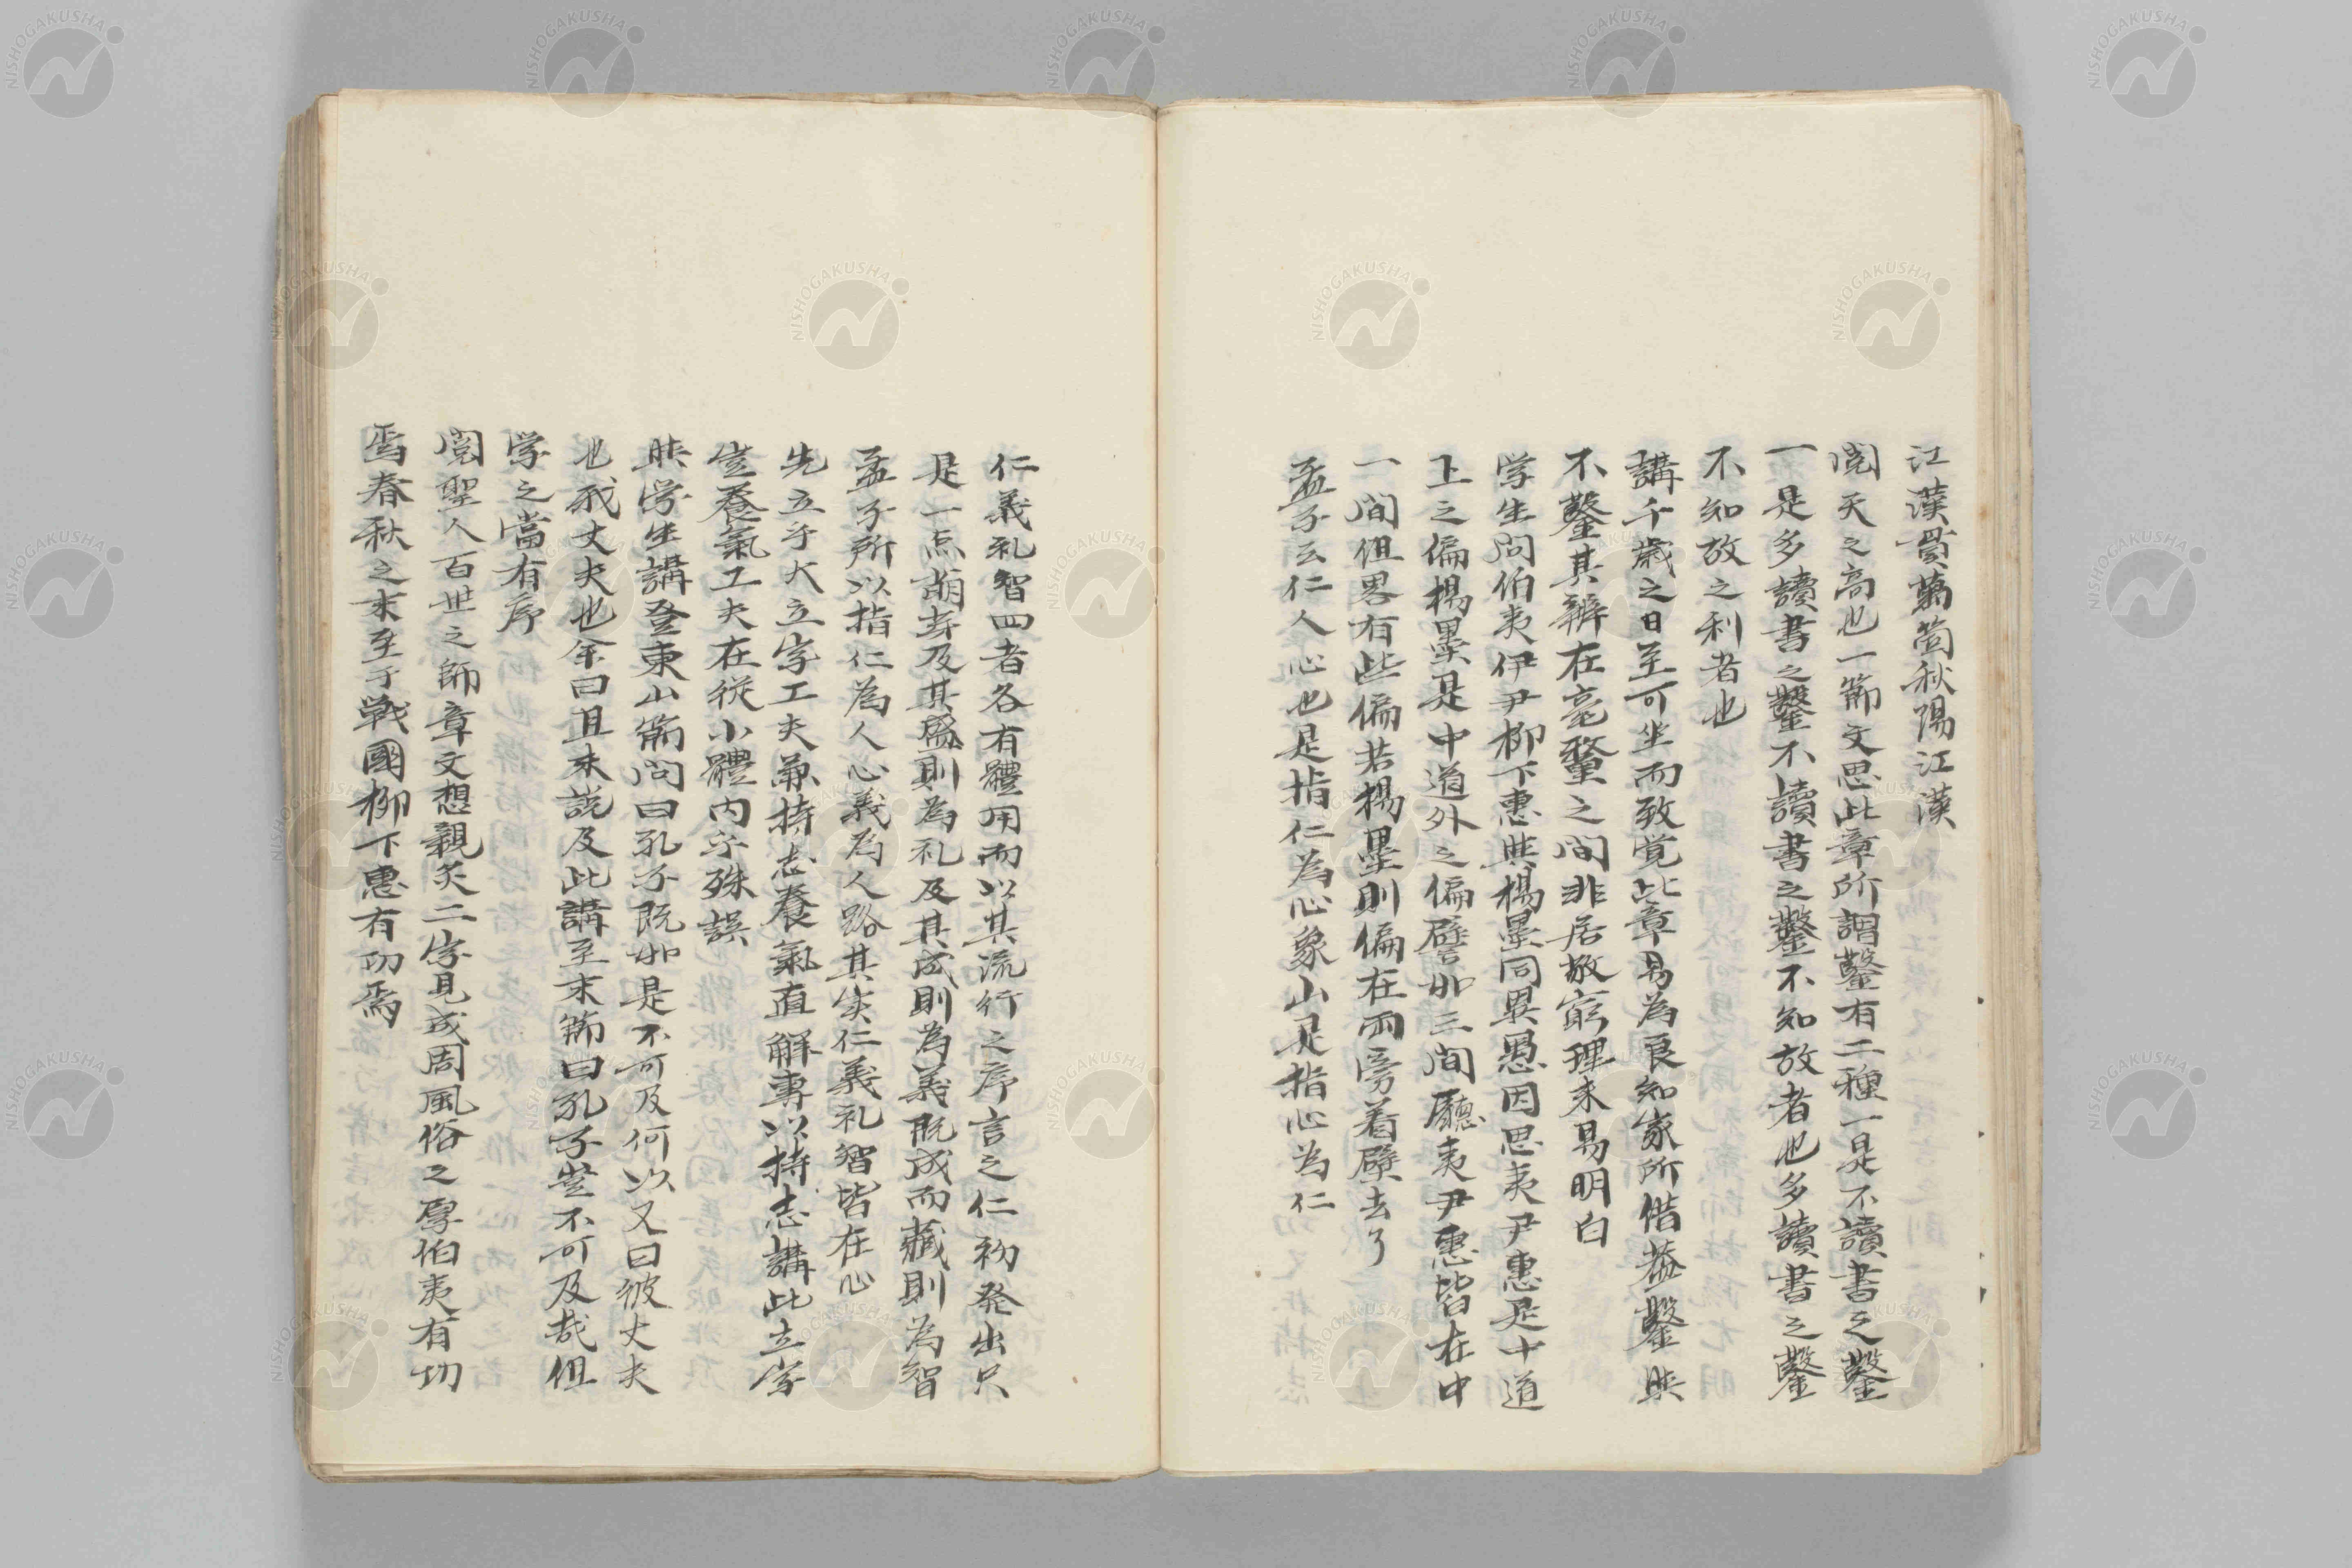 江漢貫萬箇秋陽江漢
閲天之高也一節文思此章所謂鑿有二種一是不讀書之鑿
一是多讀書之鑿不讀書之鑿不知故者也多讀書之鑿
不知故之利者也
講千歳之日至可坐而致覚此章易為良知家所借蓋鑿與
不鑿其辨在毫釐之間非居敬窮理未易明白
学生問伯夷伊尹柳下惠與楊墨同異愚因思夷尹惠是中道
上之偏楊墨是中道外之偏譬如三間廳夷尹惠皆在中
一間但畧有些偏若楊墨則偏在兩旁着壁去了
孟子云仁人心也是指仁為心象山是指心為仁
仁義礼智四者各有體用而以其流行之序言之仁初発出只
是一点萠芽及其盛則為礼及其成則為義既成而藏則為智
孟子所以指仁為人心義為人路其実仁義礼智皆在心
先立乎大立字工夫兼持志養氣直解專以持志講此立字
豈養氣工夫在従小體内乎殊誤
與学生講登東山節問曰孔子既如是不可及何以又曰彼丈夫
也我丈夫也余曰且未説及此講至末節曰孔子豈不可及哉但
学之當有序
閲聖人百世之師章文想親炙二字見成周風俗之厚伯夷有功
焉春秋之末至于戰國柳下惠有功焉
NISHOGAKUSHA